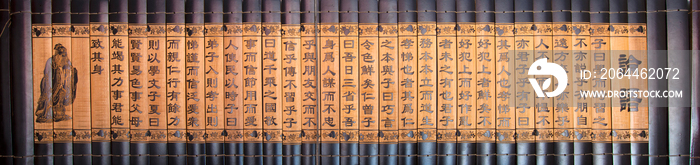 論語
子曰學而時習之
不亦說乎有朋自
遠方來不亦樂乎
人不知而不慍不
亦君子乎有子曰
其為人也孝悌而
好犯上者鮮矣不
好犯上而好作亂
者未之有也君子
務本本立而道生
孝悌也者其為仁
之本與子曰巧言
令色鮮矣仁曾子
曰吾日三省吾
身為人謀而不忠
乎與朋友交而不
信乎傳不習乎子
曰道千乘之國敬
事而信節用而愛
人使民以時子曰
弟子入則孝出則
悌謹而信汎愛衆
而親仁行有餘力
則以學文子夏曰
賢賢易色事父母
能竭其力事君能
致其身